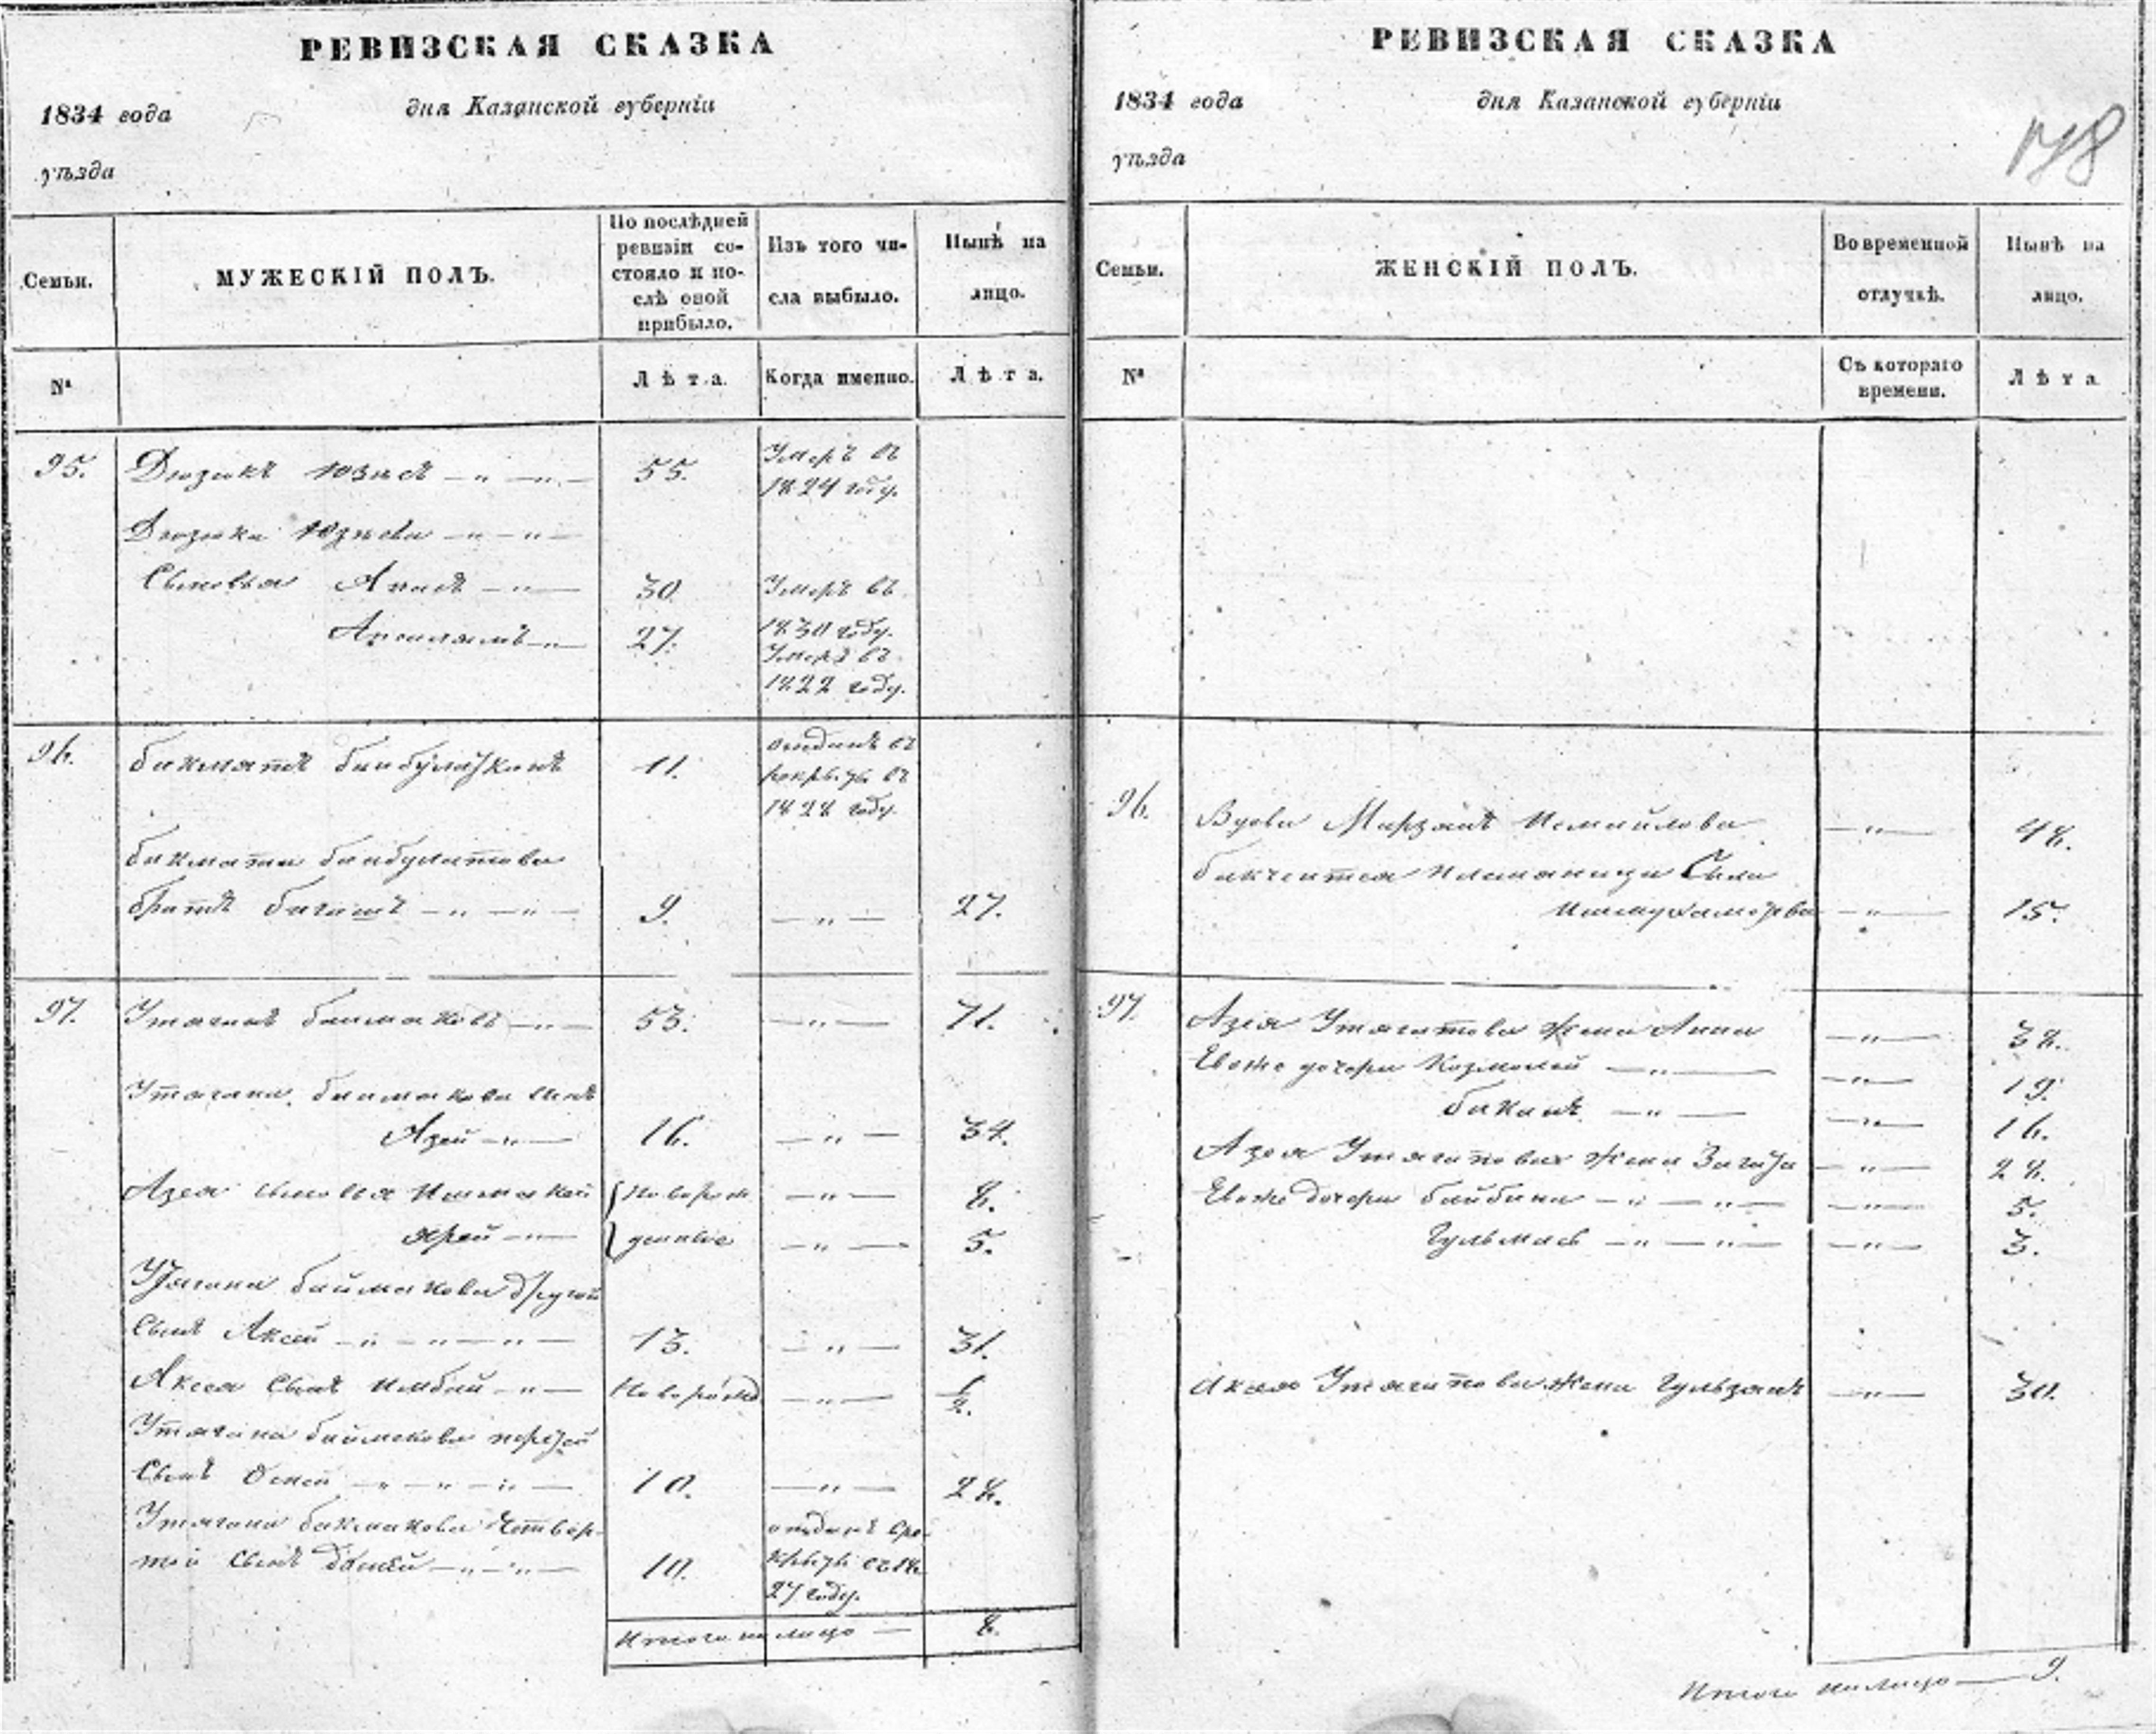 РЕВИЗСКАЯ СКАЗКА
1834 года дня Казанской губернiи
уѣзда
Семьи.
МУЖЕСКІЙ ПОЛЪ.
По послѣдней ревизіи со-
стояло и по-
слѣ оной
прибыло.
Изъ того чи-
сла выбыло.
Нынѣ на
лицо.
№
Лѣта.
Когда именно.
Лѣта.
95. 55. Умеръ въ
1824 году.
Сыновья 30. Умеръ въ
1830 году.
27. Умеръ въ
1822 году.
96. 11. отданъ въ
рекруты въ
1828 году.
братъ 9. — " — 27.
97. Утяганъ Баимаковъ — " — 53. — " — 71.
Утягана Баимакова сынъ
Азей — " — 16. — " — 34.
Азея сыновья Ишмакай Поворож — " — 8.
Ярей — " — денные — " — 5.
Утягана Баймакова другой
сынъ Аксей — " — " — " — 13. — " — 31.
Аксея сынъ Имбай — " — Поворожд — " — 1/2.
Утягана Баимакова третей
сынъ — " — " — " — 10. — " — 28.
Утягана Бакмакова четвер-
той сынъ — " — " — 10. отданъ в ре-
круты въ 18
27 году.
Итого на лицо — 8.
РЕВИЗСКАЯ СКАЗКА
1834 года дня Казанской губернiи
уѣзда
178
Семьи.
ЖЕНСКІЙ ПОЛЪ.
Во временной
отлучкѣ.
Нынѣ на
лицо.
№
Съ котораго
времени.
Лѣта
96. Вдова Марзанъ Исмаилова — " — 48.
племяница
— " — 15.
97. Азея Утяганова жена Анна — " — 38.
Евоже дочери — " — — " — 19.
Биканъ — " — — " — 16.
Азея Утяганова жена — " — 28.
Евоже дочери Байбика — " — " — — " — 5.
Гульмас — " — " — — " — 3.
Аксея Утяганова жена Гульзанъ — " — 30.
Итого налицо — 9.